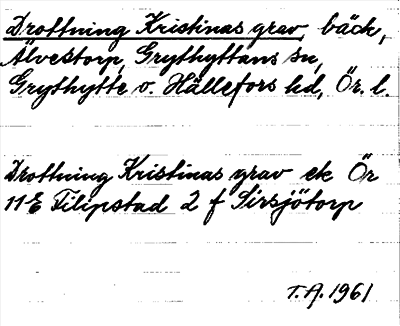 Drottning Kristinas grav, bäck,
Älvestorp, Grythyttans sn,
Grythytte o. Hällefors hd, Ör. l.
Drottning Kristinas grav ek Ör
11E Filipstad 2 f Sirsjötorp
T.A. 1961